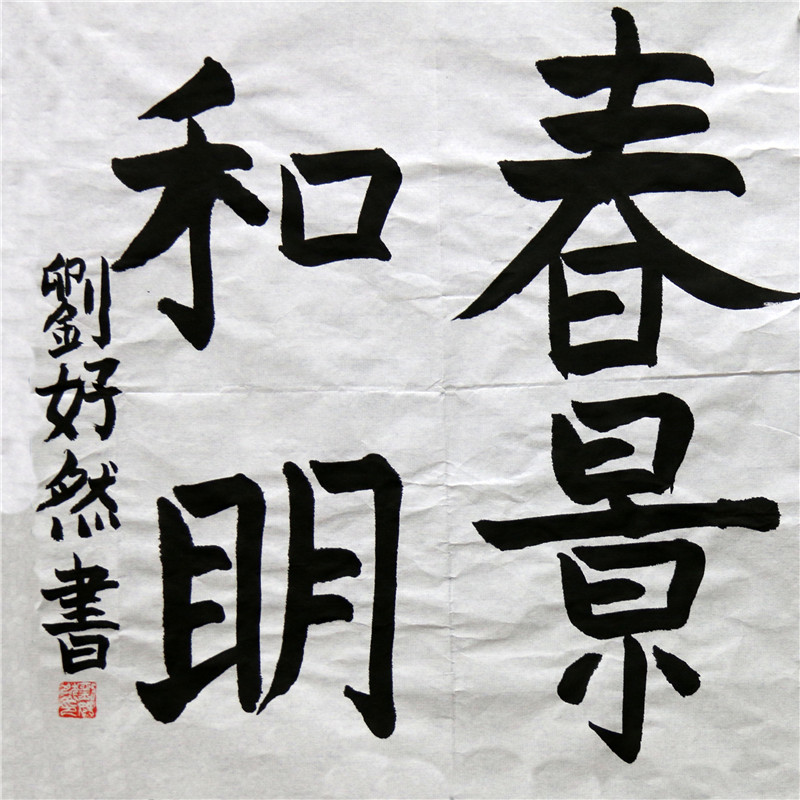 春景
和明
劉好然書